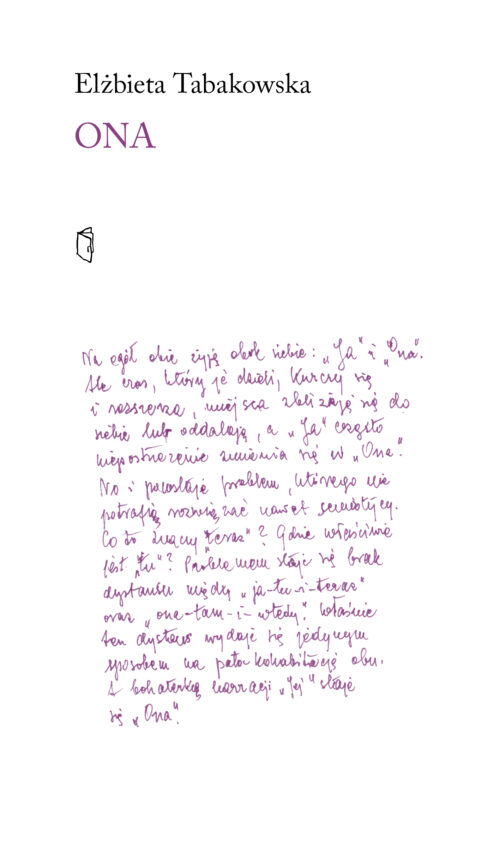 Elżbieta Tabakowska
ONA
Na ogół obie żyją obok siebie: „Ja” i „Ona”.
Ale czas, który je dzieli, kurczy się
i rozszerza, miejsca zbliżają się do
siebie lub oddalają, a „Ja” często
niepostrzeżenie zmienia się w „Ona”.
No i pozostaje problem, którego nie
potrafią rozwiązać nawet semiotycy.
Co to znaczy „teraz”? Gdzie właściwie
jest „tu”? Problemem staje się brak
dystansu między „ja-tu-i-teraz”
oraz „ona-tam-i-wtedy”. Właśnie
ten dystans wydaje się jedynym
sposobem na kohabitację obu.
A bohaterką narracji „Jej” staje
się „Ona”.